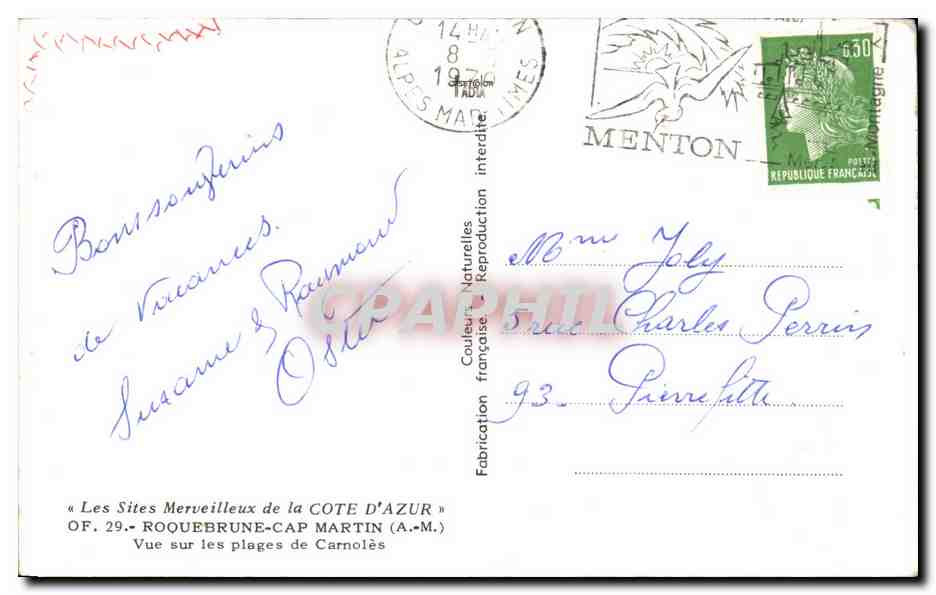 14H
8
1970
ALPES MARITIMES
MENTON
0.30
POSTES
REPUBLIQUE FRANÇAISE
Montagne
Bons souvenirs
de Vacances.
Suzanne & Raymond
Mme Joly
5 rue Charles Perrin
93- Pierrefitte
CPAPHIL
Couleurs Naturelles
Fabrication française - Reproduction interdite
« Les Sites Merveilleux de la COTE D'AZUR »
OF. 29.- ROQUEBRUNE-CAP MARTIN (A.-M.)
Vue sur les plages de Carnolès